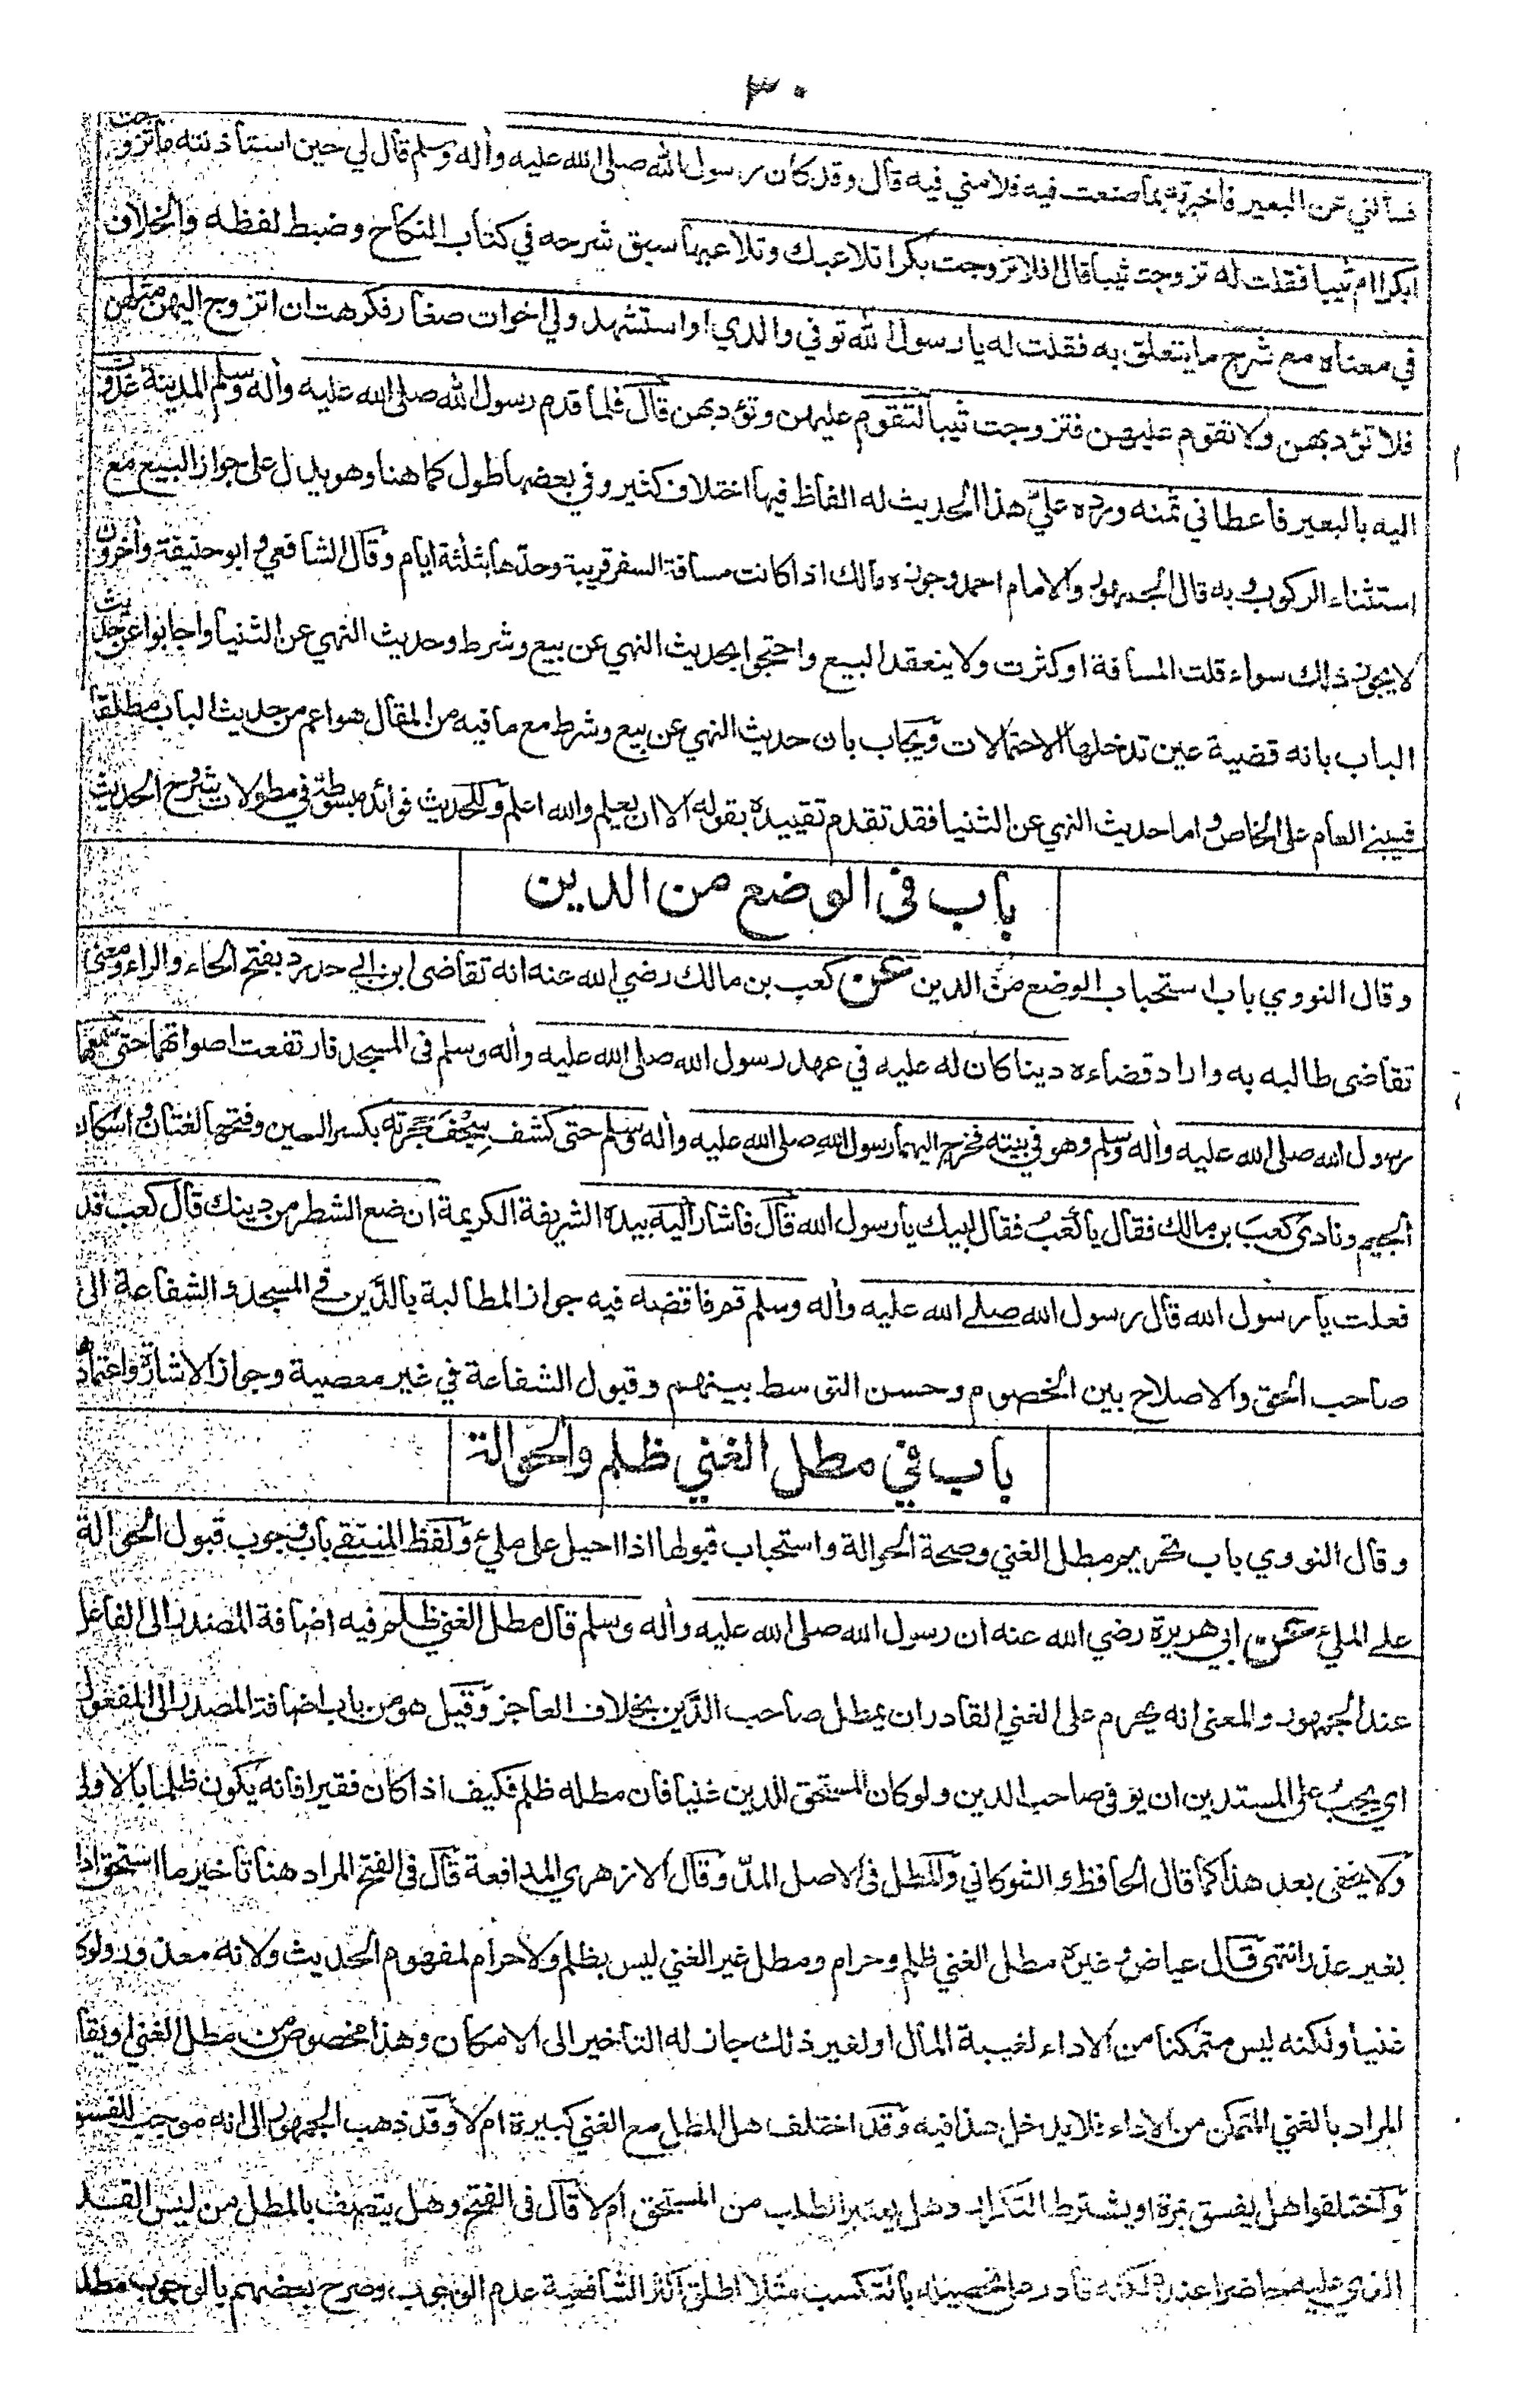 ٣٠
فسألني عن البعير فاخبرته بما صنعت فيه فلامني فيه قال وقد كان رسول الله صلى الله عليه وأله وسلم قال لي حين استأذنته ما تزوجت
ابكرا ام ثيبا فقلت له تزوجت ثيبا قال افلا تزوجت بكرا تلاعبك وتلاعبها سبق شرحه في كتاب النكاح وضبط لفظه والخلاف
في معناه مع شرح ما يتعلق به فقلت له يا رسول الله توفي والدي او استشهد ولي اخوات صغار فكرهت ان اتزوج اليهن مثلهن
فلا تؤدبهن ولا تقوم عليهن فتزوجت ثيبا لتقوم عليهن وتؤدبهن قال فلما قدم رسول الله صلى الله عليه وأله وسلم المدينة غدوت
اليه بالبعير فاعطاني ثمنه ورده عليّ هذا الحديث له الفاظ فيها اختلاف كثير وفي بعضها طول كما هنا وهو يدل على جواز البيع مع
استثناء الركوب وبه قال الجمهور والامام احمد وجوزه مالك اذا كانت مسافة السفر قريبة وحدّها بثلثة ايام وقال الشافعي وابو حنيفة وأخرون
لا يجوز ذلك سواء قلت المسافة او كثرت ولا ينعقد البيع واحتجوا بحديث النهي عن بيع وشرط وحديث النهي عن الثنيا واجابوا عن حديث
الباب بانه قضية عين تدخلها الاحتمالات ويجاب بان حديث النهي عن بيع وشرط مع ما فيه من المقال هو اعم من حديث الباب مطلقا
فيبنے العام على الخاص واما حديث النهي عن الثنيا فقد تقدم تقييده بقوله الا ان يعلم والله اعلم وللحديث فوائد مبسوطة في مطولات شروح الحديث
باب فى الوضع من الدين
وقال النووي باب استحباب الوضع من الدين عن كعب بن مالك رضي الله عنه انه تقاضى ابن ابي حدرد بفتح الحاء والراء ومعنى
تقاضى طالبه به واراد قضاءه دينا كان له عليه في عهد رسول الله صلى الله عليه وأله وسلم فى المسجد فارتفعت اصواتهما حتى سمعها
رسول الله صلى الله عليه وأله وسلم وهو في بيته فخرج اليهما رسول الله صلى الله عليه وأله وسلم حتى كشف سِجْفَ حُجرته بكسر السين وفتحها لغتان واسكان
الجيم ونادى كعبَ بن مالك فقال يا كعبُ فقال لبيك يا رسول الله قال فاشار اليه بيده الشريفة الكريمة ان ضع الشطر من دينك قال كعب قد
فعلت يا رسول الله قال رسول الله صلے الله عليه وأله وسلم قم فاقضه فيه جواز المطالبة بالدَّين فى المسجد والشفاعة الى
صاحب الحق والاصلاح بين الخصوم وحسن التوسط بينهم وقبول الشفاعة في غير معصية وجواز الاشارة واعتمادها
باب في مطل الغني ظلم والحوالة
وقال النووي باب تحريم مطل الغني وصحة الحوالة واستحباب قبولها اذا احيل على مليء ولفظ المنتقے باب وجوب قبول الحوالة
علے المليء عن ابي هريرة رضي الله عنه ان رسول الله صلى الله عليه وأله وسلم قال مطل الغني ظلم فيه اضافة المصدر الى الفاعل
عند الجمهور والمعنى انه يحرم على الغني القادر ان يمطل صاحب الدَّين بخلاف العاجز وقيل هو من باب اضافة المصدر الى المفعول
اي يجب على المستدين ان يوفى صاحب الدين ولو كان المستحق للدين غنيا فان مطله ظلم فكيف اذا كان فقيرا فانه يكون ظلما بالاولى
ولا يخفى بعد هذا كما قال الحافظ والشوكاني والمطل فى الاصل المدّ وقال الازهري المدافعة قال فى الفتح المراد هنا تأخير ما استحق اداؤه
بغير عذر انتهى قال عياض وغيره مطل الغني ظلم وحرام ومطل غير الغني ليس بظلم ولا حرام لمفهوم الحديث ولانه معذور ولو كان
غنيا ولكنه ليس متمكنا من الاداء لغيبة المال او لغير ذلك جاز له التاخير الى الامكان وهذا مخصوص من مطل الغني او يقال
المراد بالغني المتمكن من الاداء فلا يدخل هذا فيه وقد اختلف هل المطل مع الغني كبيرة ام لا وقد ذهب الجمهور الى انه موجب للفسق
واختلفوا هل يفسق بمرة او يشترط التكرار وهل يعتبر الطلب من المستحق ام لا قال فى الفتح وهل يتصف بالمطل من ليس القدر
الذي عليه حاضرا عنده لكنه قادر على تحصيله بالتكسب مثلا اطلق اكثر الشافعية عدم الوجوب وصرح بعضهم بالوجوب مطلقا